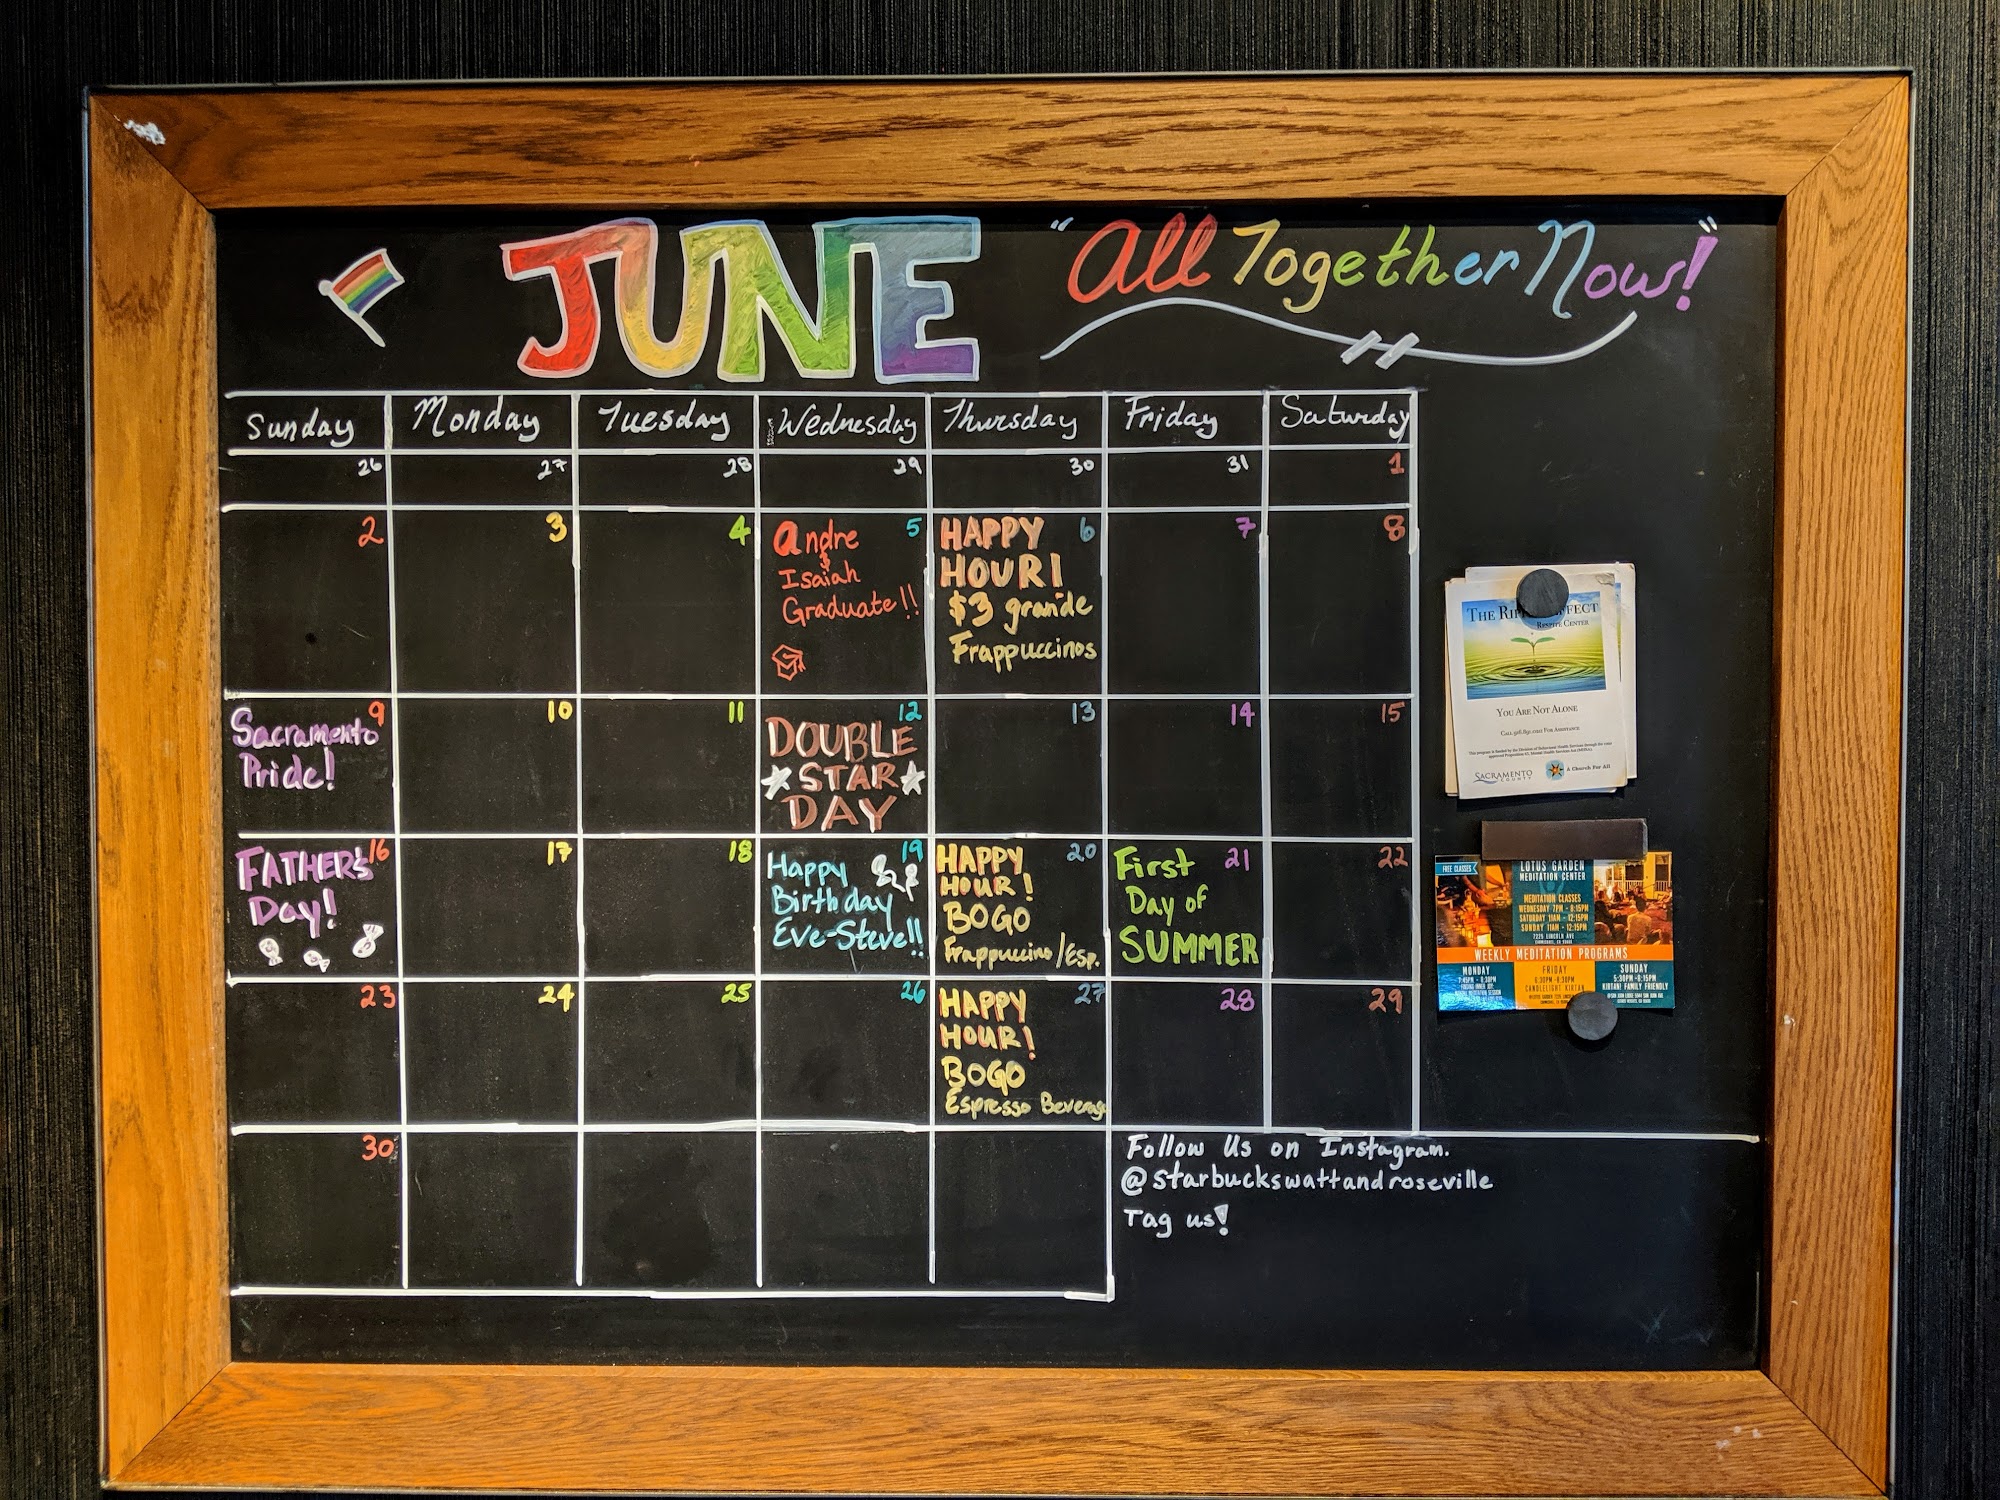 JUNE
"All Together Now!"
Sunday Monday Tuesday Wednesday Thursday Friday Saturday
26 27 28 29 30 31 1
2 3 4 5 6 7 8
Andre
&
Isaiah
Graduate!!
HAPPY
HOUR!
$3 grande
Frappuccinos
9 10 11 12 13 14 15
Sacramento
Pride!
DOUBLE
STAR
DAY
16 17 18 19 20 21 22
FATHER'S
Day!
Happy
Birthday
Eve-Steve!!
HAPPY
HOUR!
BOGO
Frappuccino/Esp.
First
Day of
SUMMER
23 24 25 26 27 28 29
HAPPY
HOUR!
BOGO
Espresso Beverage
30
Follow Us on Instagram.
@starbuckswattandroseville
Tag us!
THE EFFECT
RESPITE CENTER
YOU ARE NOT ALONE
FOR ASSISTANCE
SACRAMENTO
COUNTY
A Church For All
FREE CLASSES
LOTUS GARDEN
MEDITATION CENTER
MEDITATION CLASSES
WEDNESDAY 7PM - 8:15PM
SATURDAY 11AM - 12:15PM
SUNDAY 11AM - 12:15PM
WEEKLY MEDITATION PROGRAMS
MONDAY
FRIDAY
6:30PM - 8:30PM
CANDLELIGHT KIRTAN
SUNDAY
5:30PM - 8:15PM
KIRTAN! FAMILY FRIENDLY